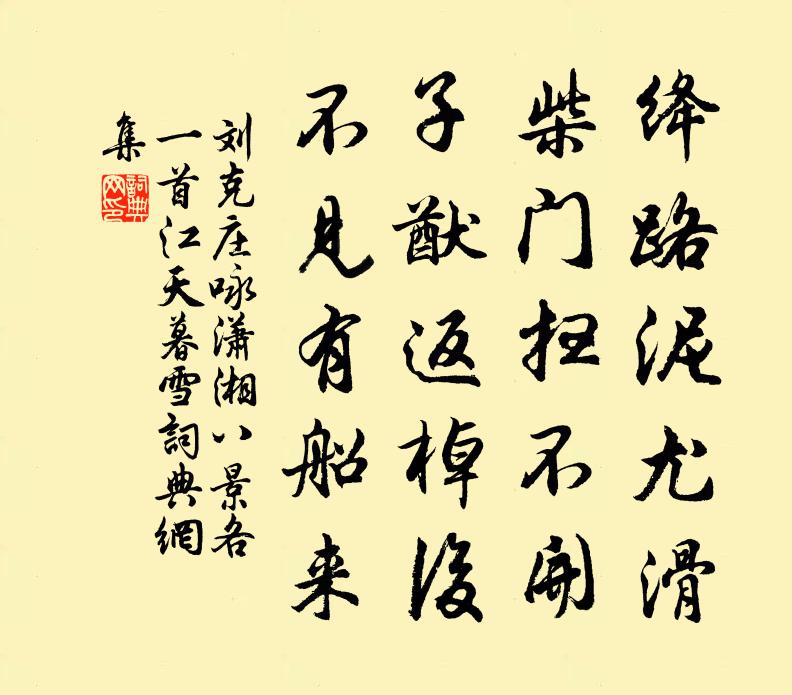 绛路泥尤滑
柴门扫不开
子猷返棹後
不见有船来
刘克庄咏潇湘八景各
一首江天暮雪詞典網
集
詞典網印